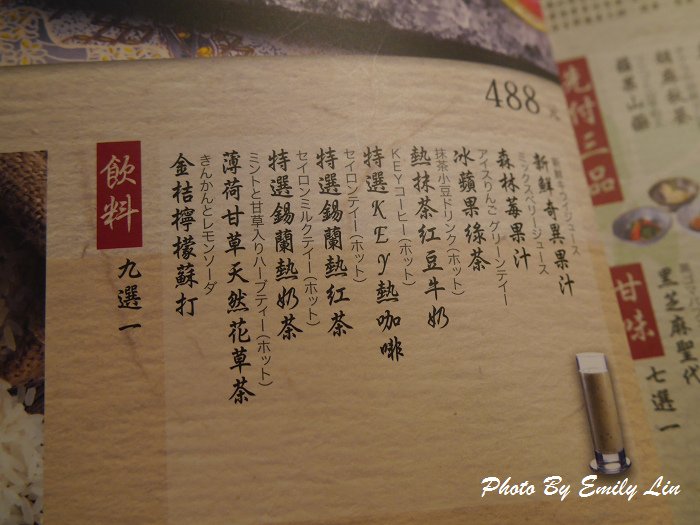 488 元
新鮮キウイジュース
新鮮奇異果汁
ミックスベリージュース
森林莓果汁
アイスりんごグリーンティー
冰蘋果綠茶
抹茶小豆ドリンク(ホット)
熱抹茶紅豆牛奶
KEYコーヒー(ホット)
特選KEY熱咖啡
セイロンティー(ホット)
特選錫蘭熱紅茶
セイロンミルクティー(ホット)
特選錫蘭熱奶茶
ミントと甘草入りハーブティー(ホット)
薄荷甘草天然花草茶
きんかんとレモンソーダ
金桔檸檬蘇打
飲料 九選一
先付三品
甘味 七選一
黑芝麻聖代
Photo By Emily Lin